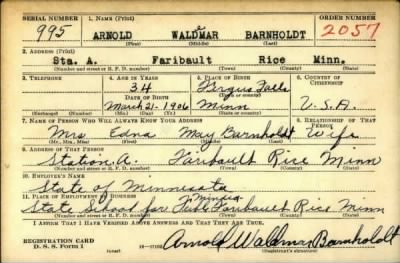 SERIAL NUMBER 1. NAME (Print) ORDER NUMBER
995 ARNOLD WALDMAR BARNHOLDT 2057
(First) (Middle) (Last)
2. ADDRESS (Print)
Sta. A. Faribault Rice Minn.
(Number and street or R. F. D. number) (Town) (County) (State)
3. TELEPHONE 4. AGE IN YEARS 5. PLACE OF BIRTH 6. COUNTRY OF CITIZENSHIP
34 Fergus Falls
DATE OF BIRTH (Town or county)
March-21-1906 Minn U.S.A.
(Exchange) (Number) (Mo.) (Day) (Yr.) (State or country)
7. NAME OF PERSON WHO WILL ALWAYS KNOW YOUR ADDRESS 8. RELATIONSHIP OF THAT PERSON
Mrs Edna May Barnholdt Wife
(Mr., Mrs., Miss) (First) (Middle) (Last)
9. ADDRESS OF THAT PERSON
Station A. Faribault Rice Minn
(Number and street or R. F. D. number) (Town) (County) (State)
10. EMPLOYER'S NAME
State of Minnesota
11. PLACE OF EMPLOYMENT OR BUSINESS
State School for Faribault Rice Minn
(Number and street or R. F. D. number) (Town) (County) (State)
I AFFIRM THAT I HAVE VERIFIED ABOVE ANSWERS AND THAT THEY ARE TRUE.
REGISTRATION CARD
D. S. S. Form 1 Arnold Waldmar Barnholdt
(Registrant's signature)